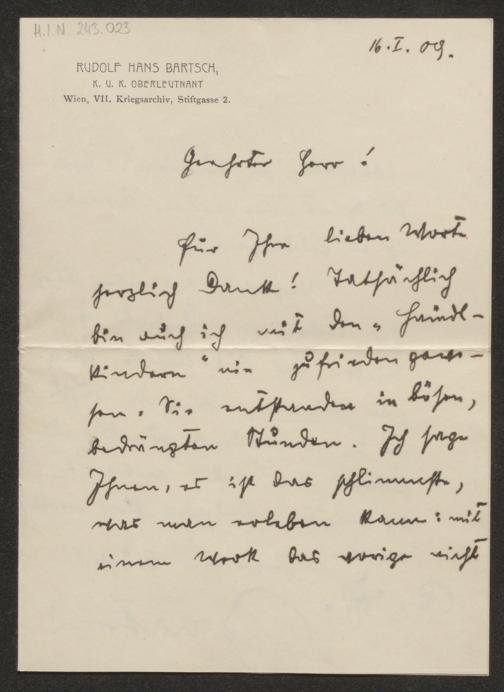 H.I.N. 243.023
16.I.09.
RUDOLF HANS BARTSCH,
K. U. K. OBERLEUTNANT
Wien, VII. Kriegsarchiv, Stiftgasse 2.
Geehrter Herr!
Für Ihre lieben Worte
herzlich Dank! Tatsächlich
bin auch ich mit den „Haindl-
kindern" nie zufrieden gewe-
sen. Sie entstanden in bösen,
bedrängten Stunden. Ich sage
Ihnen, es ist das schlimmste,
was man erleben kann: mit
einem Werk das vorige nicht